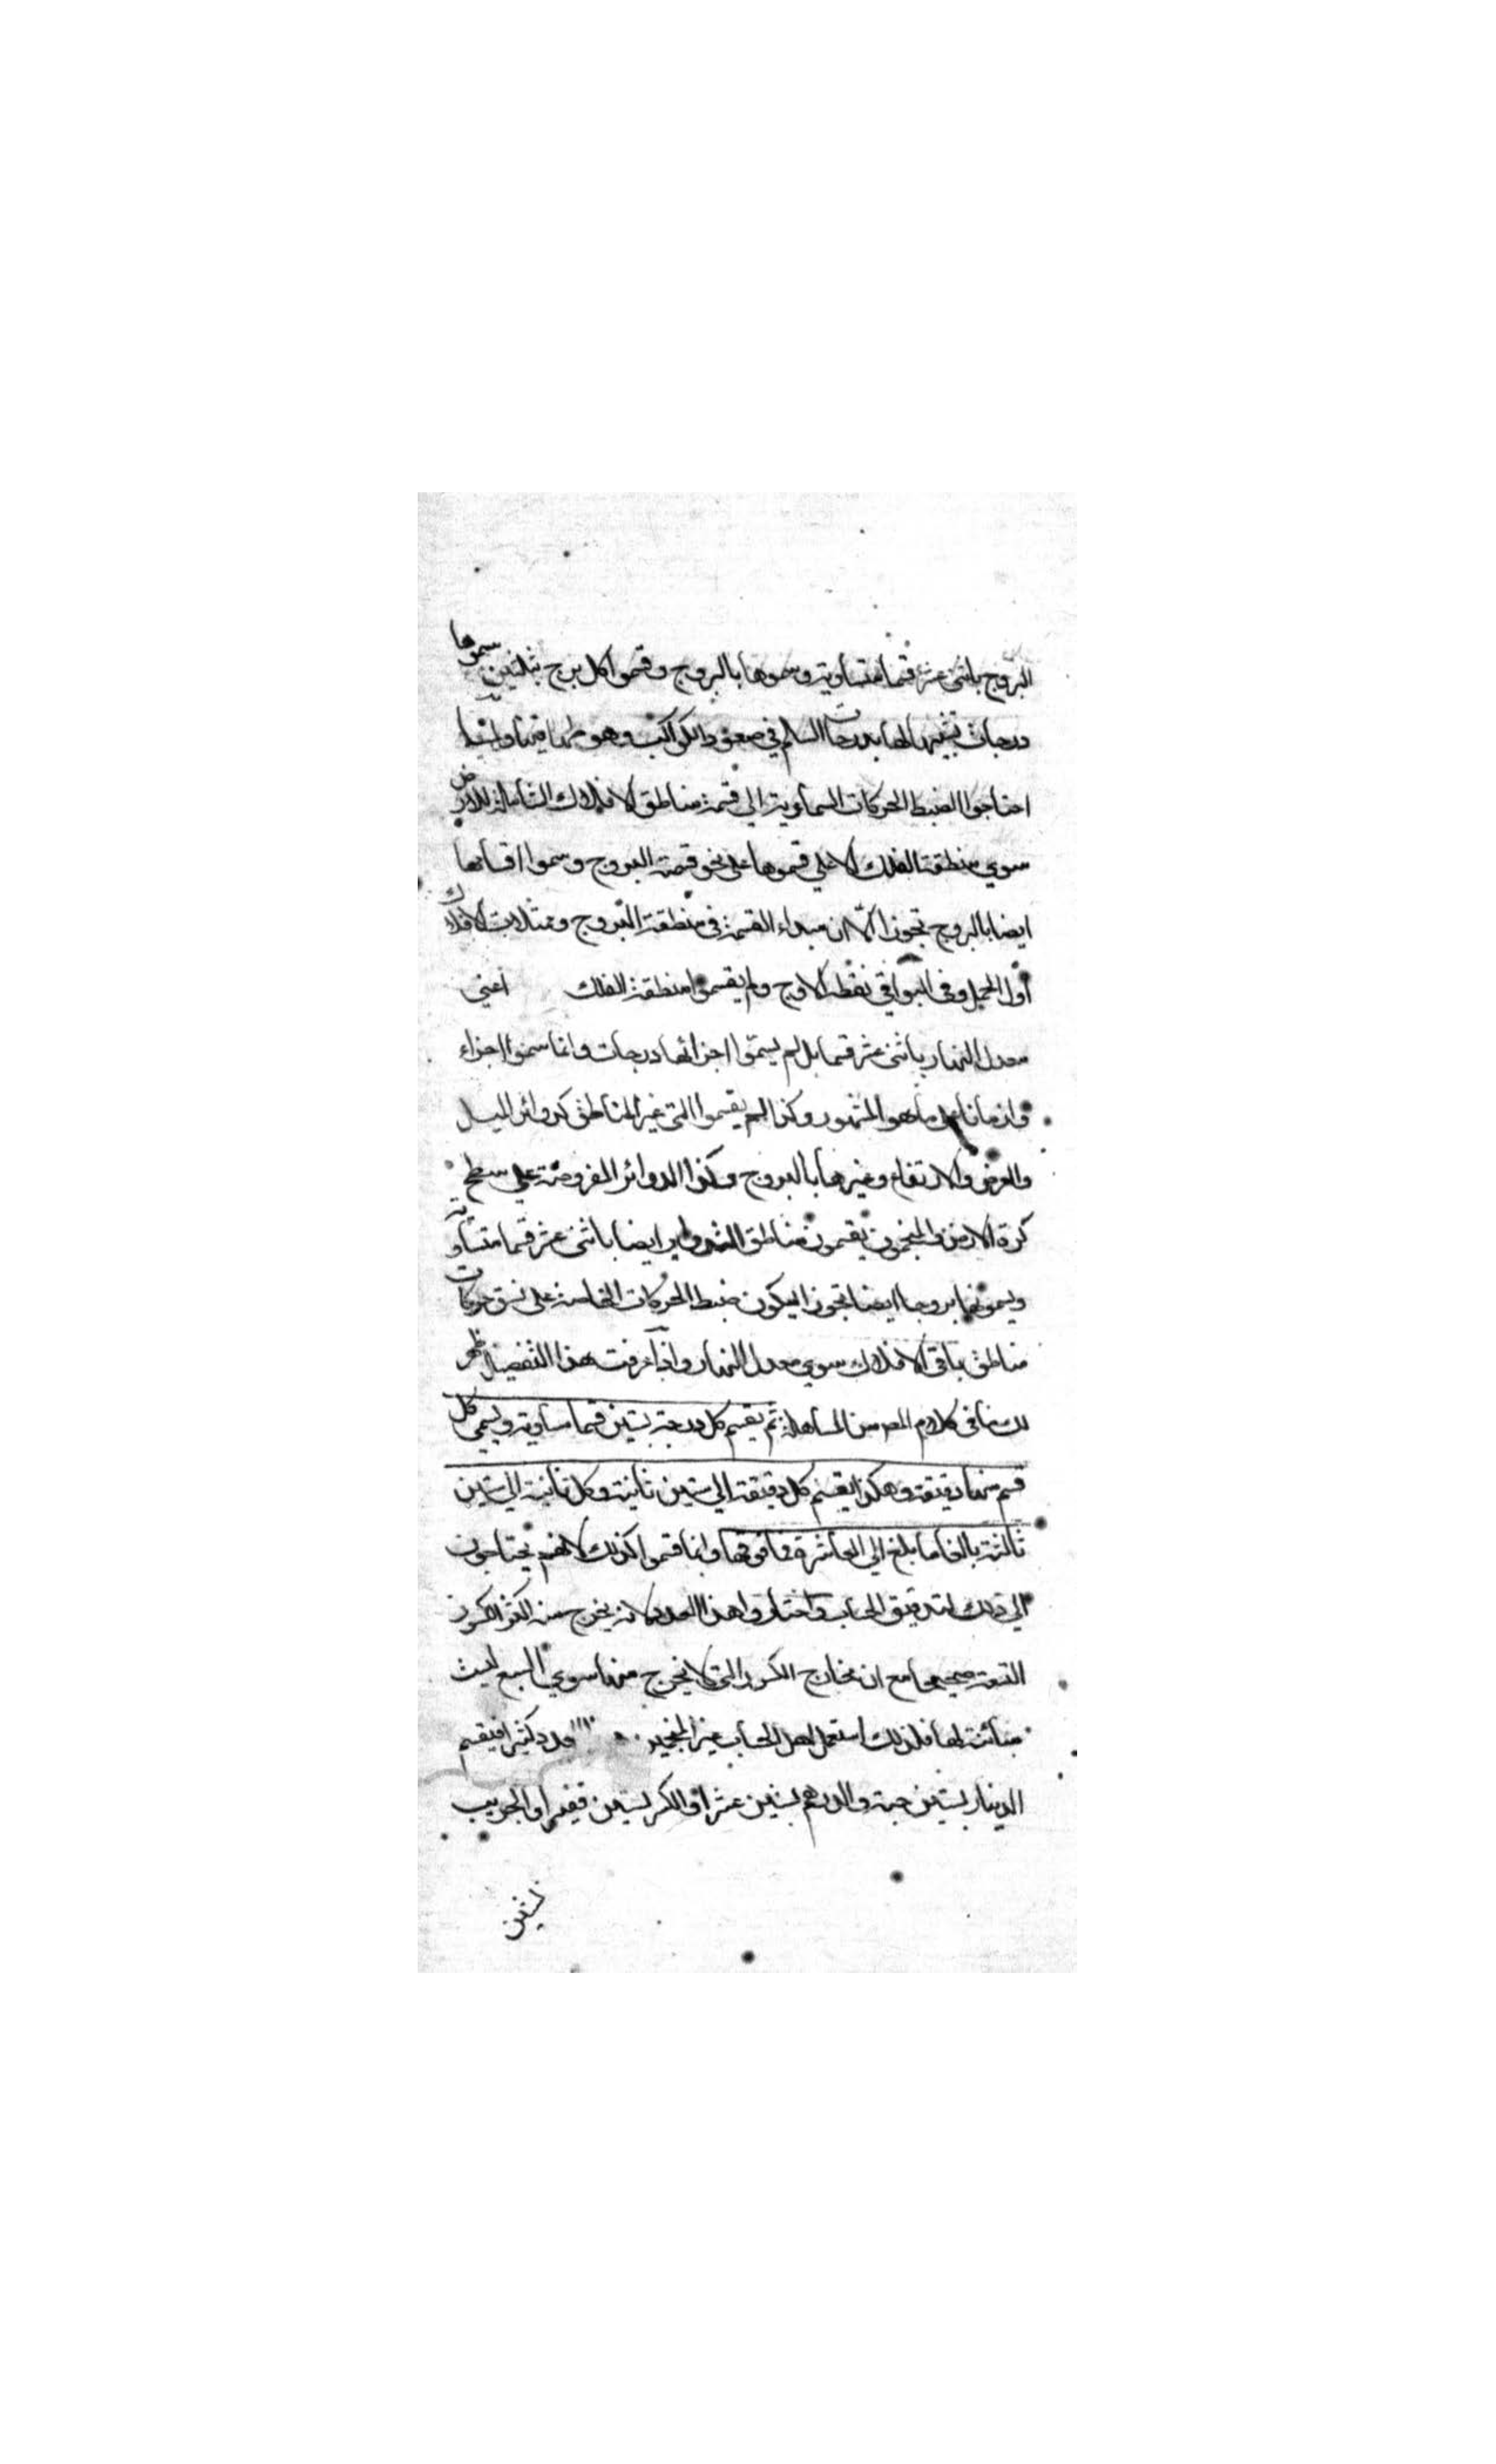 البروج باثنى عشر قسما متساوية وسموها بالبروج وقسموا كل برج بثلثين سموها
درجات تشبيها لها بدرجات السلم في صعود الكواكب وهبوطها فيها ولما
احتاجوا لضبط الحركات السماوية الى قسمة مناطق الافلاك الشاملة للارض
سوي منطقة الفلك الاعلي قسموها على نحو قسمة البروج وسموا اقسامها
ايضا بالبروج تجوزا الا ان مبداء القسمة في منطقة البروج وممثلات الافلاك
أول الحمل وفى البواقي نقطة الاوج ولم يقسموا منطقة الفلك أعني
معدل النهار باثنى عشر قسما بل لم يسمّوا اجزائها درجات وانما سمّوا اجزاء
وازمانا على ما هو المشهور وكذا لم يقسموا التى غير المناطق كدوائر الميل
والعرض والارتفاع وغيرها بالبروج وكذا الدوائر المفروضة علي سطح
كرة الارض والمنجمون يقسمون مناطق التداوير ايضا باثنى عشر قسما متساوية
ويسمونها بروجا ايضا تجوزا ليكون ضبط الحركات الخاصة على نسق حركات
مناطق باقى الافلاك سوي معدل النهار واذا عرفت هذا التفصيل ظهر
لك ما فى كلام المص من المساهلة ثم يقسم كل درجة بستين قسما متساوية ويسمى كل
قسم منها دقيقة وهكذا يقسم كل دقيقة الى ستين ثانية وكل ثانية الى ستين
ثالثة بالغا ما بلغ الي العاشرة فما فوقها وانما قسموا كذلك لانهم يحتاجون
الي ذلك لتدقيق الحساب واختاروا هذا العدد لانه يخرج منه اكثر الكسور
التسعة صحيحا مع ان مخارج الكسور التى لا يخرج منها سوي السبع ليست
مبائنة لها فلذلك استعمل اهل الحساب غير المنجمين كثيرا فيقسم
الدينار بستين حبة والدرهم بستين عشرا والكر بستين قفيزا والجريب
بستين